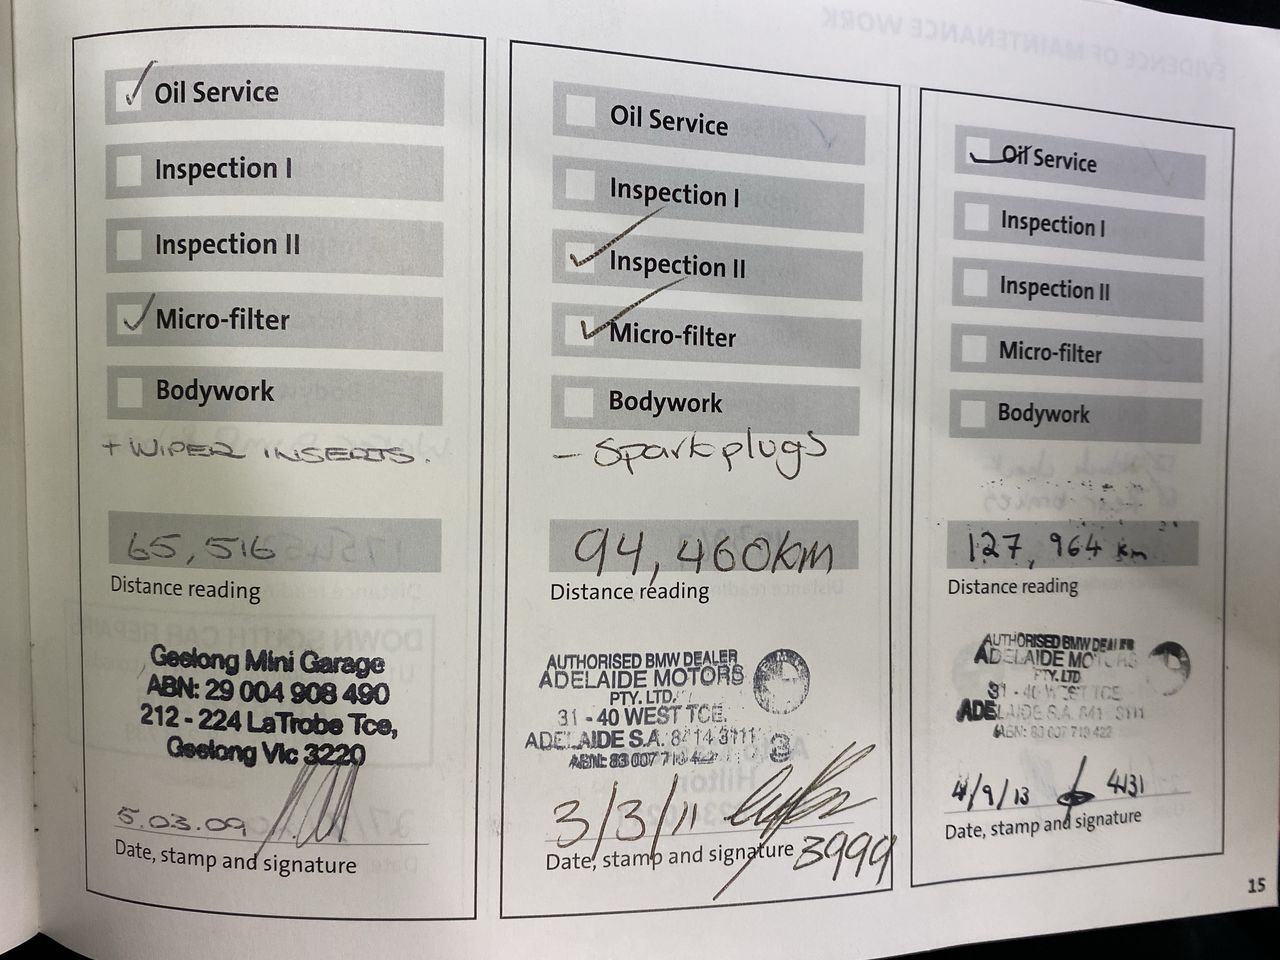 Oil Service
Inspection I
Inspection II
Micro-filter
Bodywork
+ WIPER INSERTS.
65,516
Distance reading
Geelong Mini Garage
ABN: 29 004 908 490
212 - 224 LaTrobe Tce,
Geelong Vic 3220
5.03.09
Date, stamp and signature
Oil Service
Inspection I
Inspection II
Micro-filter
Bodywork
- Sparkplugs
94,460km
Distance reading
AUTHORISED BMW DEALER
ADELAIDE MOTORS
PTY. LTD.
31 - 40 WEST TCE.
ADELAIDE S.A. 8414 3111
ABN: 83 007 713 422
3/3/11
Date, stamp and signature 3999
Oil Service
Inspection I
Inspection II
Micro-filter
Bodywork
127,964 km
Distance reading
AUTHORISED BMW DEALER
ADELAIDE MOTORS
PTY. LTD
31 - 40 WEST TCE
ADELAIDE S.A. 841 3111
ABN: 83 007 713 422
4/9/13 4131
Date, stamp and signature
15